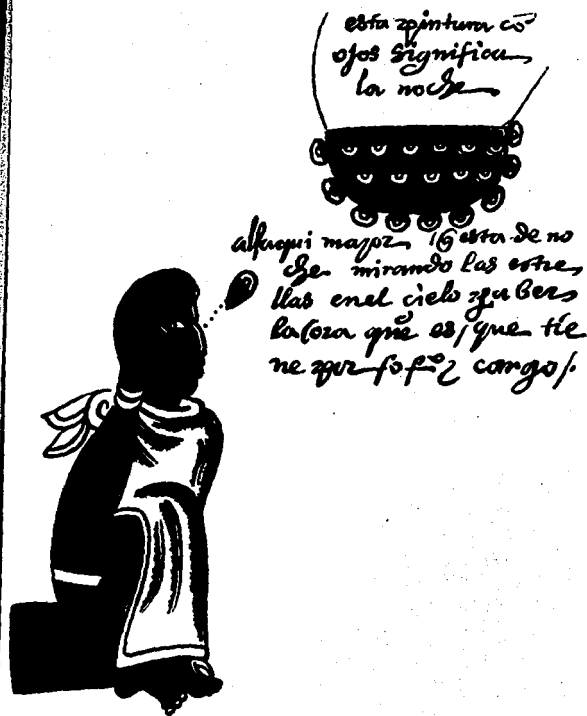 esta pintura cõ
ojos significa
la noche
alfaqui mayor q̃ esta de no
che mirando las estre
llas en el cielo y a ber
la ora que es / que tie
ne por so ofiº y cargo /.